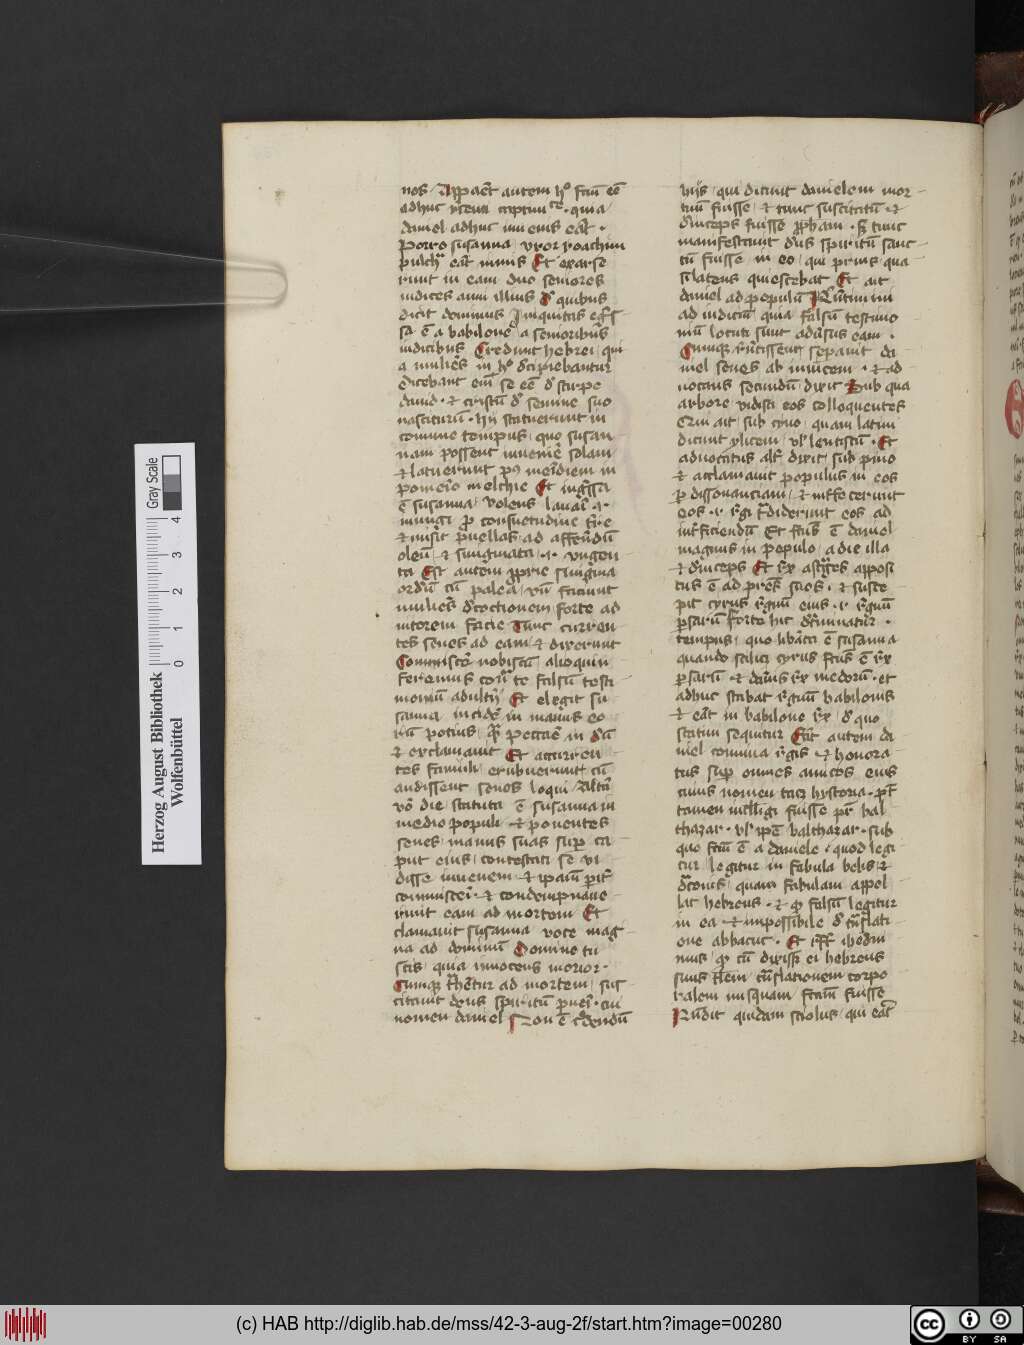 nos. Apparet autem hoc factum esse
adhuc
daniel adhuc iuvenis erat.
Porro susanna uxor ioachim
pulchra erat nimis Et exarse
runt in eam duo seniores
iudices anni illius De quibus
dicit dominus Iniquitas egres
sa e a babilone a senioribus
iudicibus Credunt hebrei qui
dicebant eni se ee de stirpe
david. et cristum de semine suo
nasciturum. Hii statuerunt in
comune tempus quo susan
nam possent invenire solam
et latuerunt post meridiem in
pomerio melchie Et ingressa
e susanna volens lavari
inungi pro consuetudine terre
et misit puellas ad afferendum
oleum et smigmata .i. ungen
ta Est autem proprie smigma
mulieres decoctionem forte ad
nitorem faciei Tunc curren
tes senes ad eam et dixerunt
Commiscere nobiscum alioquin
feremus contra te falsum testi
monium adulterii Et elegit su
sanna incidere in manus eo
rum potius quam peccare in deum
et exclamavit Et accurren
tes famuli erubuerunt cum
audissent senes loqui Altera
vero die statuta e susanna in
medio populi et ponentes
senes manus suas super ca
put eius contestati se vi
disse iuvenem et ipam pariter
commisceri. et condempnave
runt eam ad mortem Et
clamavit susanna voce mag
na ad dominum Domine tu
scis quia innocens morior.
Cumque traheretur ad mortem sus
citavit deus spiritum pueri cui
nomen daniel Non e credendum
hiis qui dicunt danielem mor
tuum fuisse et tunc suscitatum et
deinceps fuisse probam. sed tunc
manifestavit deus spiritum sanc
tum fuisse in eo qui prius qua
si latens quiescebat Et ait
daniel ad populum Revertimini
ad iudicium quia falsum testimo
nium locuti sunt adversus eam.
Cumque revertissent separavit da
niel senes ab invicem. et ad
vocans secundum dixit Sub qua
arbore vidisti eos colloquentes
Qui ait sub cyno quam latini
dicunt ylicem vel lentiscum. Et
advocatus alter dixit sub pino
et acclamavit populus in eos
per dissonanciam et interfecerunt
eos .i. regi tradiderunt eos ad
interficiendum Et factus e daniel
magnus in populo a die illa
et deinceps Et rex astyages apposi
tus e ad patres suos. et susce
pit cyrus regnum eius .i. regnum
persarum Forte hic determinatur
tempus quo liberata e susanna
quando scilicet cyrus factus e rex
persarum. et darius rex medorum. et
adhuc stabat regnum babilonis
et erat in babilone rex de quo
statim sequitur Erat autem da
niel conviva regis et honora
tus super omnes amicos eius
cuius nomen tacet hystoria. potest
tamen intelligi fuisse pater bal
thazar. vel ipse balthazar. sub
quo factum e a daniele quod legi
tur legitur in fabula belis et
draconis quam fabulam appel
lat hebreus. et quod falsum legitur
in ea et impossibile de translati
one abbacuc. Et iheroni
mus quod cum dixisset ei hebreus
suus talem translationem corpo
ralem nusquam factam fuisse
Rundit quidam scolus qui erat
Herzog August Bibliothek
Wolfenbüttel
Gray Scale
0 1 2 3 4
(c) HAB http://diglib.hab.de/mss/42-3-aug-2f/start.htm?image=00280
cc BY SA